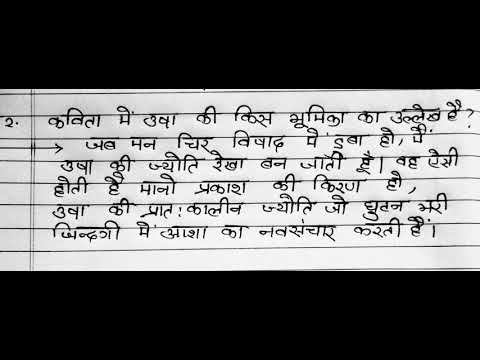 २. कविता में उषा की किस भूमिका का उल्लेख है?
→ जब मन चिर विषाद में डूबा हो, मैं
उषा की ज्योति रेखा बन जाती हूँ। वह ऐसी
होती है मानो प्रकाश की किरण हो,
उषा की प्रात:कालीन ज्योति जो घुटन भरी
जिन्दगी में आशा का नवसंचार करती है।